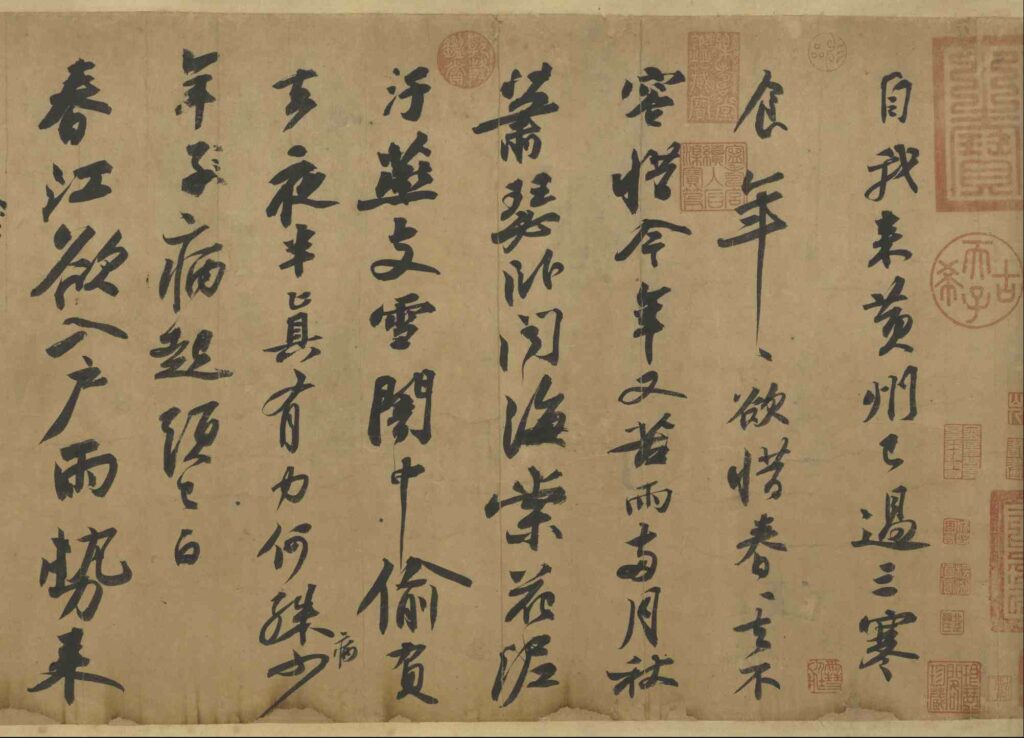 自我來黃州已過三寒
食年、欲惜春、去不
容惜今年又苦雨兩月秋
蕭瑟卧聞海棠花泥
汙燕支雪闇中偷負
去夜半真有力何殊少
病
年子病起頭已白
春江欲入戶雨勢來
古希天子